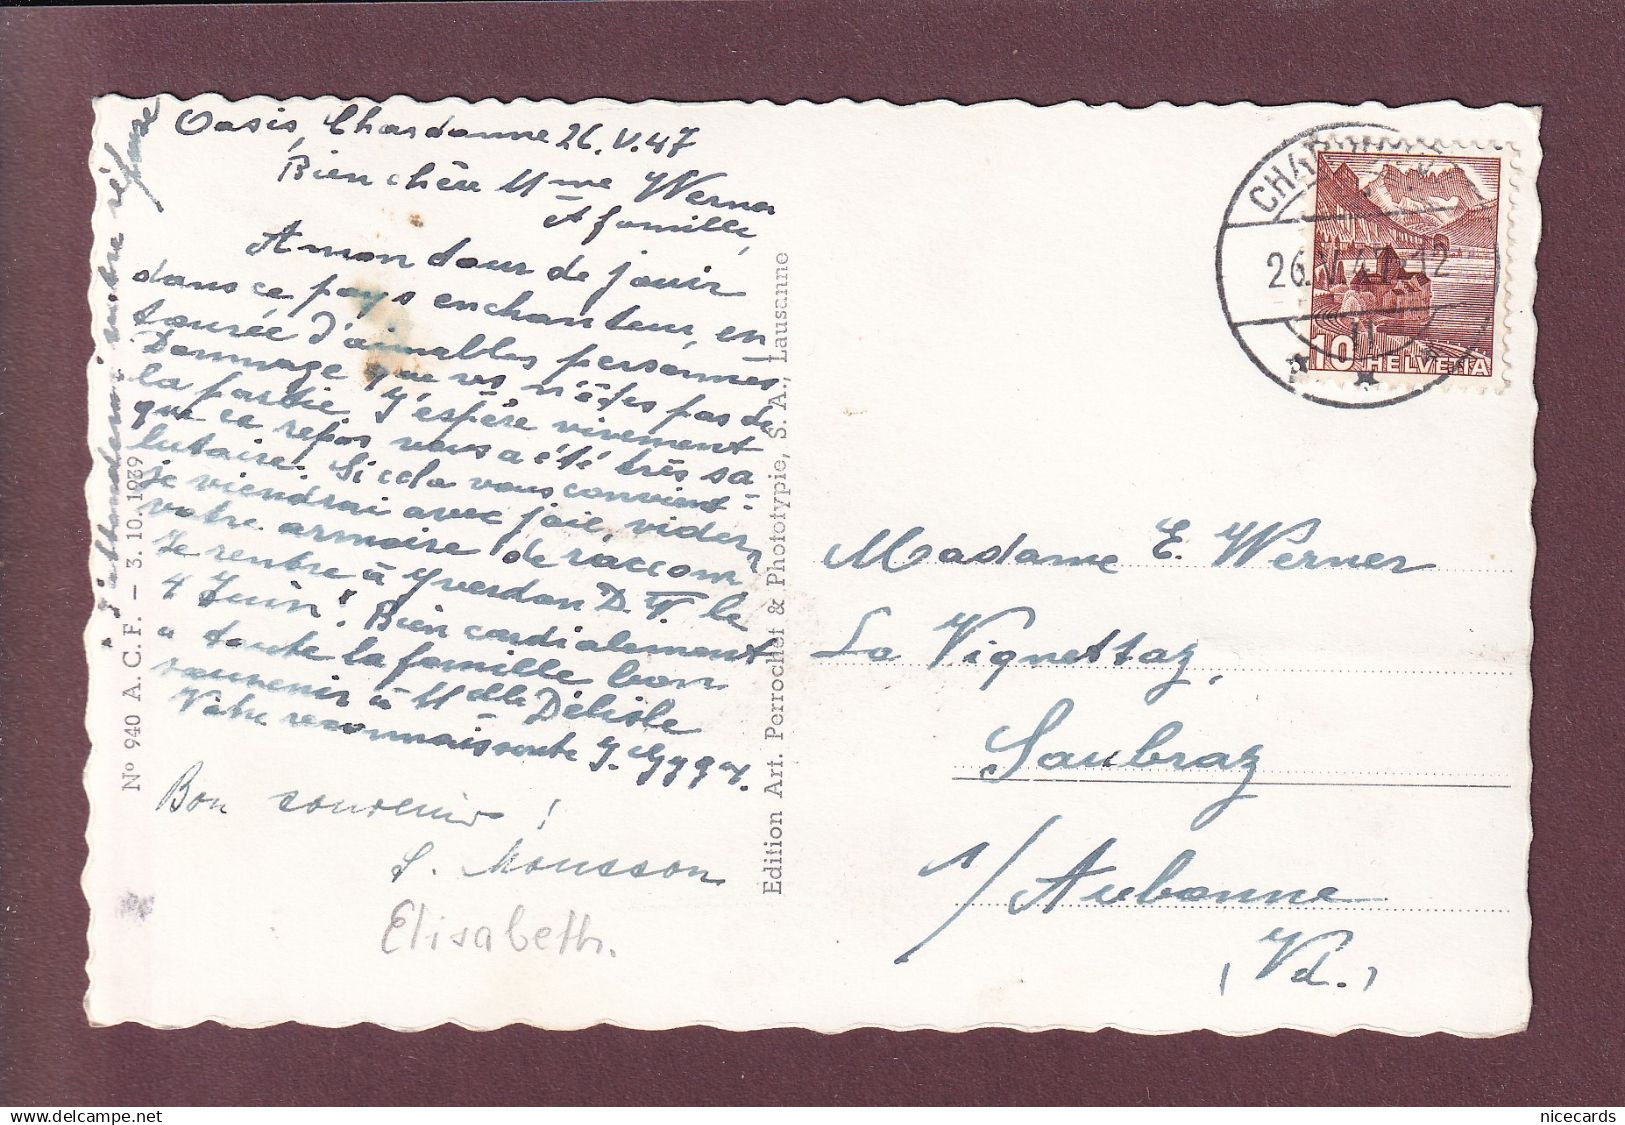 Oasis, Chardonne 26.V.47
Bien chère Mme Werner
et famille,
A mon tour de jouir
dans ce pays enchanteur, en-
tourée d'aimables personnes
Dommage que vs n'êtes pas de
la partie. J'espère vivement
que ce repos vous a été très sa
lutaire. Si cela vous convient
je viendrai avec joie, vider
votre armoire de raccom
Je rentre à Yverdon D. V. le
4 Juin! Bien cordialement
a toute la famille bon
souvenir à Mlle Délisle
Votre reconnaissante J. Gygax.
j'attendrai votre réponse
Bon souvenir!
S. Mousson
Elisabeth.
No 940 A. C. F. – 3. 10. 1939
Edition Art. Perrochet & Phototypie, S. A., Lausanne
26.V.47 12
10 HELVETIA
Madame E. Werner
La Vignettaz,
Saubraz
s/Aubonne
(Vd.)
nicecards